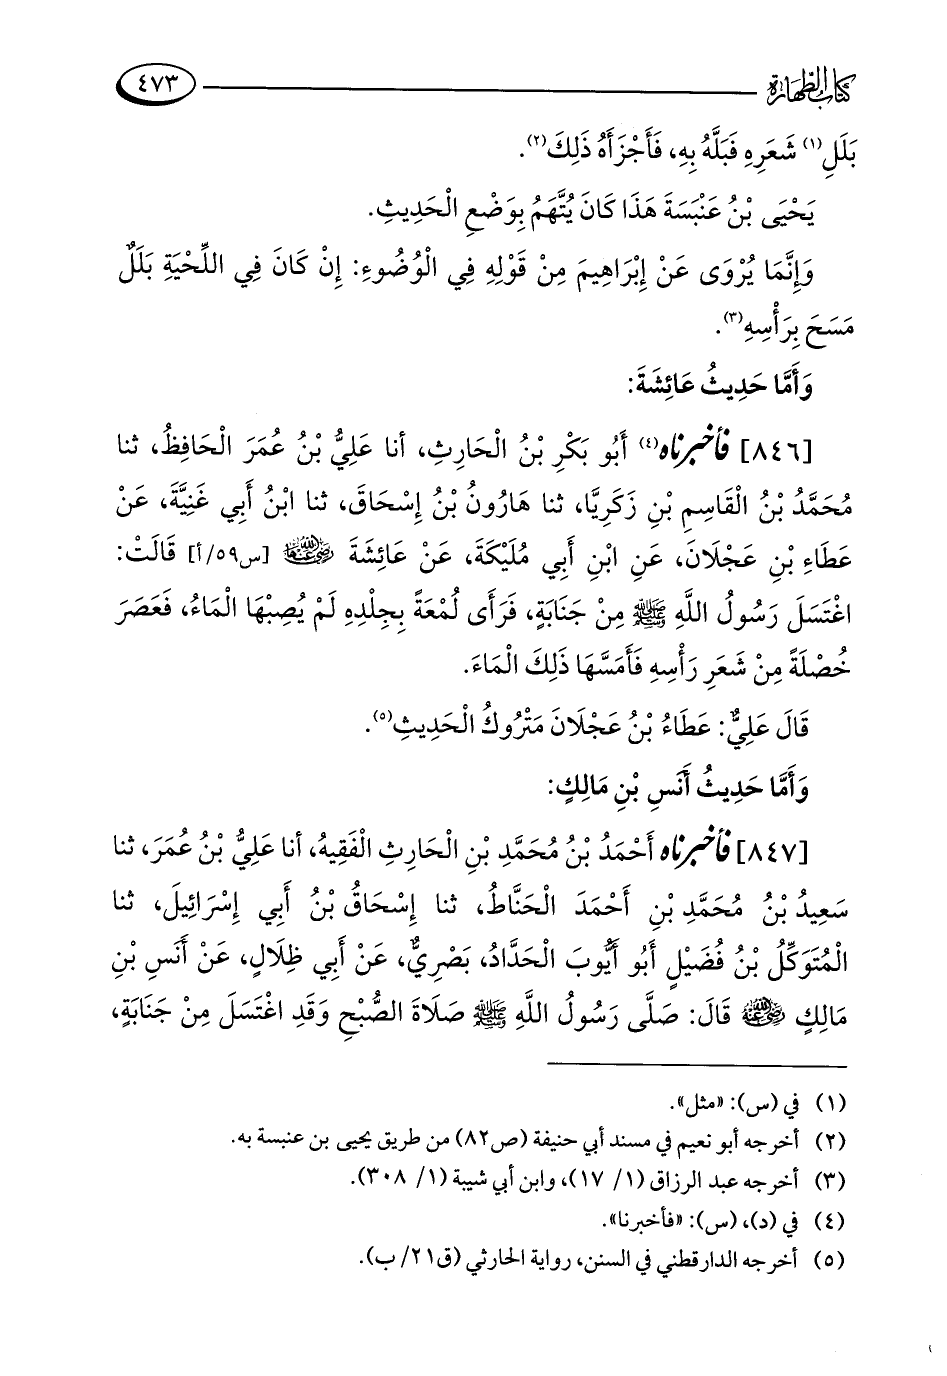 كتاب الطهارة
٤٧٣
بَلَلِ(١) شَعَرِهِ فَبَلَّهُ بِهِ، فَأَجْزَأَهُ ذَلِكَ(٢).
يَحْيَى بْنُ عَنْبَسَةَ هَذَا كَانَ يُتَّهَمُ بِوَضْعِ الْحَدِيثِ.
وَإِنَّمَا يُرْوَى عَنْ إِبْرَاهِيمَ مِنْ قَوْلِهِ فِي الْوُضُوءِ: إِنْ كَانَ فِي اللِّحْيَةِ بَلَلٌ
مَسَحَ بِرَأْسِهِ(٣).
وَأَمَّا حَدِيثُ عَائِشَةَ:
[٨٤٦] فأخبرناه(٤) أَبُو بَكْرِ بْنُ الْحَارِثِ، أنا عَلِيُّ بْنُ عُمَرَ الْحَافِظُ، ثنا
مُحَمَّدُ بْنُ الْقَاسِمِ بْنِ زَكَرِيَّا، ثنا هَارُونُ بْنُ إِسْحَاقَ، ثنا ابْنُ أَبِي غَنِيَّةَ، عَنْ
عَطَاءِ بْنِ عَجْلَانَ، عَنِ ابْنِ أَبِي مُلَيْكَةَ، عَنْ عَائِشَةَ رضي الله عنها [س٥٩/أ] قَالَتْ:
اغْتَسَلَ رَسُولُ اللَّهِ ﷺ مِنْ جَنَابَةٍ، فَرَأَى لُمْعَةً بِجِلْدِهِ لَمْ يُصِبْهَا الْمَاءُ، فَعَصَرَ
خُصْلَةً مِنْ شَعَرِ رَأْسِهِ فَأَمَسَّهَا ذَلِكَ الْمَاءَ.
قَالَ عَلِيٌّ: عَطَاءُ بْنُ عَجْلَانَ مَتْرُوكُ الْحَدِيثِ(٥).
وَأَمَّا حَدِيثُ أَنَسِ بْنِ مَالِكٍ:
[٨٤٧] فأخبرناه أَحْمَدُ بْنُ مُحَمَّدِ بْنِ الْحَارِثِ الْفَقِيهُ، أنا عَلِيُّ بْنُ عُمَرَ، ثنا
سَعِيدُ بْنُ مُحَمَّدِ بْنِ أَحْمَدَ الْحَنَّاطُ، ثنا إِسْحَاقُ بْنُ أَبِي إِسْرَائِيلَ، ثنا
الْمُتَوَكِّلُ بْنُ فُضَيْلٍ أَبُو أَيُّوبَ الْحَدَّادُ، بَصْرِيٌّ، عَنْ أَبِي ظِلَالٍ، عَنْ أَنَسِ بْنِ
مَالِكٍ رضي الله عنه قَالَ: صَلَّى رَسُولُ اللَّهِ ﷺ صَلَاةَ الصُّبْحِ وَقَدِ اغْتَسَلَ مِنْ جَنَابَةٍ،
(١) في (س): «مثل».
(٢) أخرجه أبو نعيم في مسند أبي حنيفة (ص٨٢) من طريق يحيى بن عنبسة به.
(٣) أخرجه عبد الرزاق (١/ ١٧)، وابن أبي شيبة (١/ ٣٠٨).
(٤) في (د)، (س): «فأخبرنا».
(٥) أخرجه الدارقطني في السنن، رواية الحارثي (ق٢١/ ب).